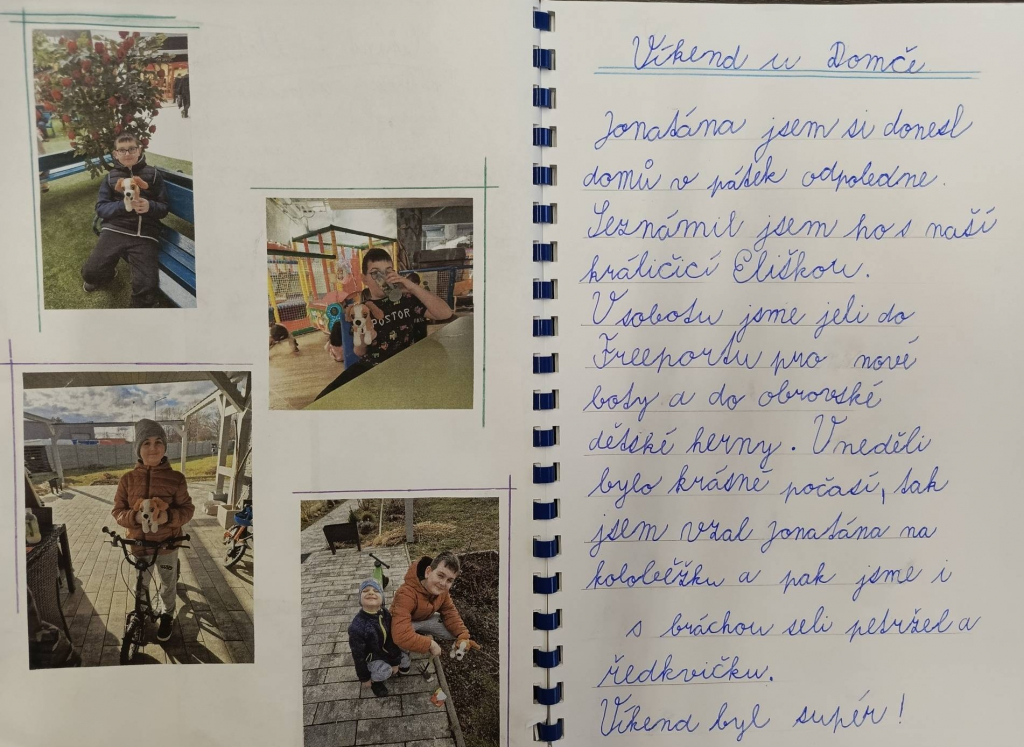 POSTOR
Víkend u Domče
Jonatána jsem si donesl
domů v pátek odpoledne.
Seznámil jsem ho s naší
králičicí Eliškou.
V sobotu jsme jeli do
Freeportu pro nové
boty a do obrovské
dětské herny. V neděli
bylo krásné počasí, tak
jsem vzal Jonatána na
koloběžku a pak jsme i
s bráchou seli petržel a
ředkvičku.
Víkend byl supér!